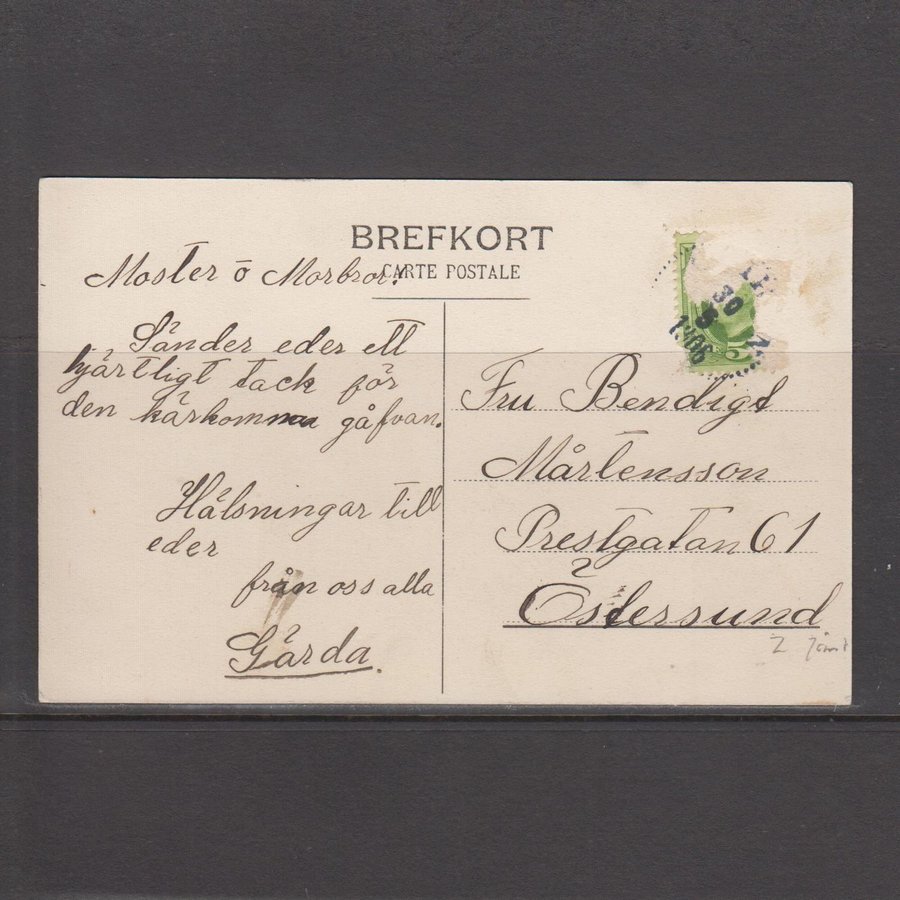 BREFKORT
CARTE POSTALE
Moster o Morbror!
Sänder eder ett
hjärtligt tack för
den kärkomna gåfvan.
Hälsningar till
eder
från oss alla
Gärda.
30
1906
Fru Bendigt
Mårtensson
Prestgatan 61
Östersund